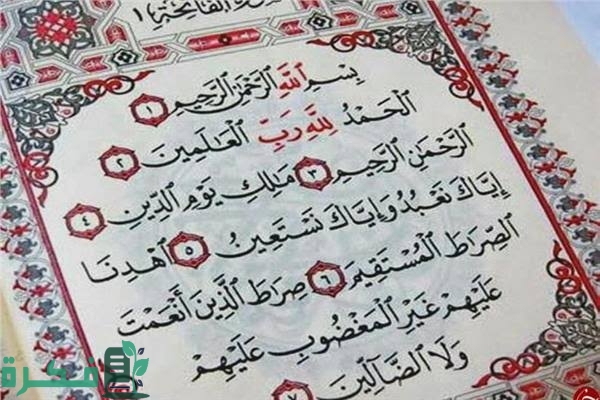 سورة الفاتحة ١
بِسْمِ ٱللَّهِ ٱلرَّحْمَٰنِ ٱلرَّحِيمِ ١
ٱلْحَمْدُ لِلَّهِ رَبِّ ٱلْعَالَمِينَ ٢
ٱلرَّحْمَٰنِ ٱلرَّحِيمِ ٣ مَالِكِ يَوْمِ ٱلدِّينِ ٤
إِيَّاكَ نَعْبُدُ وَإِيَّاكَ نَسْتَعِينُ ٥ ٱهْدِنَا
ٱلصِّرَاطَ ٱلْمُسْتَقِيمَ ٦ صِرَاطَ ٱلَّذِينَ أَنْعَمْتَ
عَلَيْهِمْ غَيْرِ ٱلْمَغْضُوبِ عَلَيْهِمْ
وَلَا ٱلضَّآلِّينَ ٧
فكرة